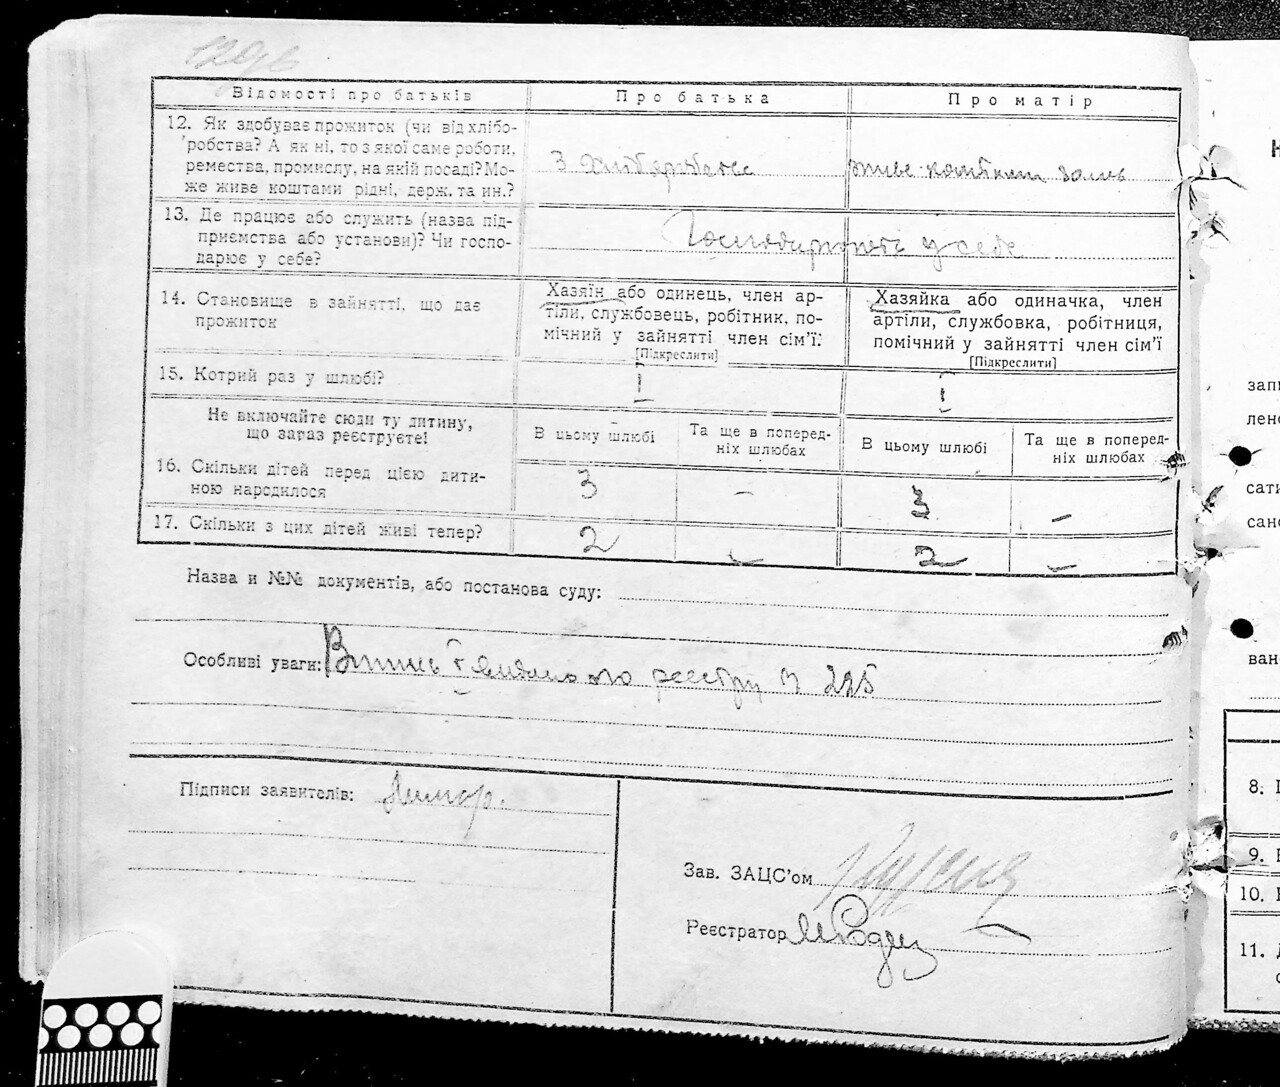 129б
Відомості про батьків
Про батька
Про матір
12. Як здобуває прожиток (чи від хлібо-
робства? А як ні, то з якої саме роботи,
ремества, промислу, на якій посаді? Мо-
же живе коштами рідні, держ. та ин.?
З хліборобства
живе коштами
13. Де працює або служить (назва під-
приємства або установи)? Чи госпо-
дарює у себе?
у себе
14. Становище в зайнятті, що дає
прожиток
Хазяїн або одинець, член ар-
тіли, службовець, робітник, по-
мічний у зайнятті член сім’ї:
[Підкреслити]
Хазяйка або одиначка, член
артіли, службовка, робітниця,
помічний у зайнятті член сім’ї
[Підкреслити]
15. Котрий раз у шлюбі?
I
I
Не включайте сюди ту дитину,
що зараз реєструєте!
В цьому шлюбі
Та ще в поперед-
ніх шлюбах
В цьому шлюбі
Та ще в поперед-
ніх шлюбах
16. Скільки дітей перед цією дити-
ною народилося
3
-
3
-
17. Скільки з цих дітей живі тепер?
2
-
2
-
Назва и №№ документів, або постанова суду:
Особливі уваги:
реєстру 225
Підписи заявителів:
Зав. ЗАЦС’ом
Реєстратор
запи
лено
сати
сано
вано
8.
9.
10.
11.